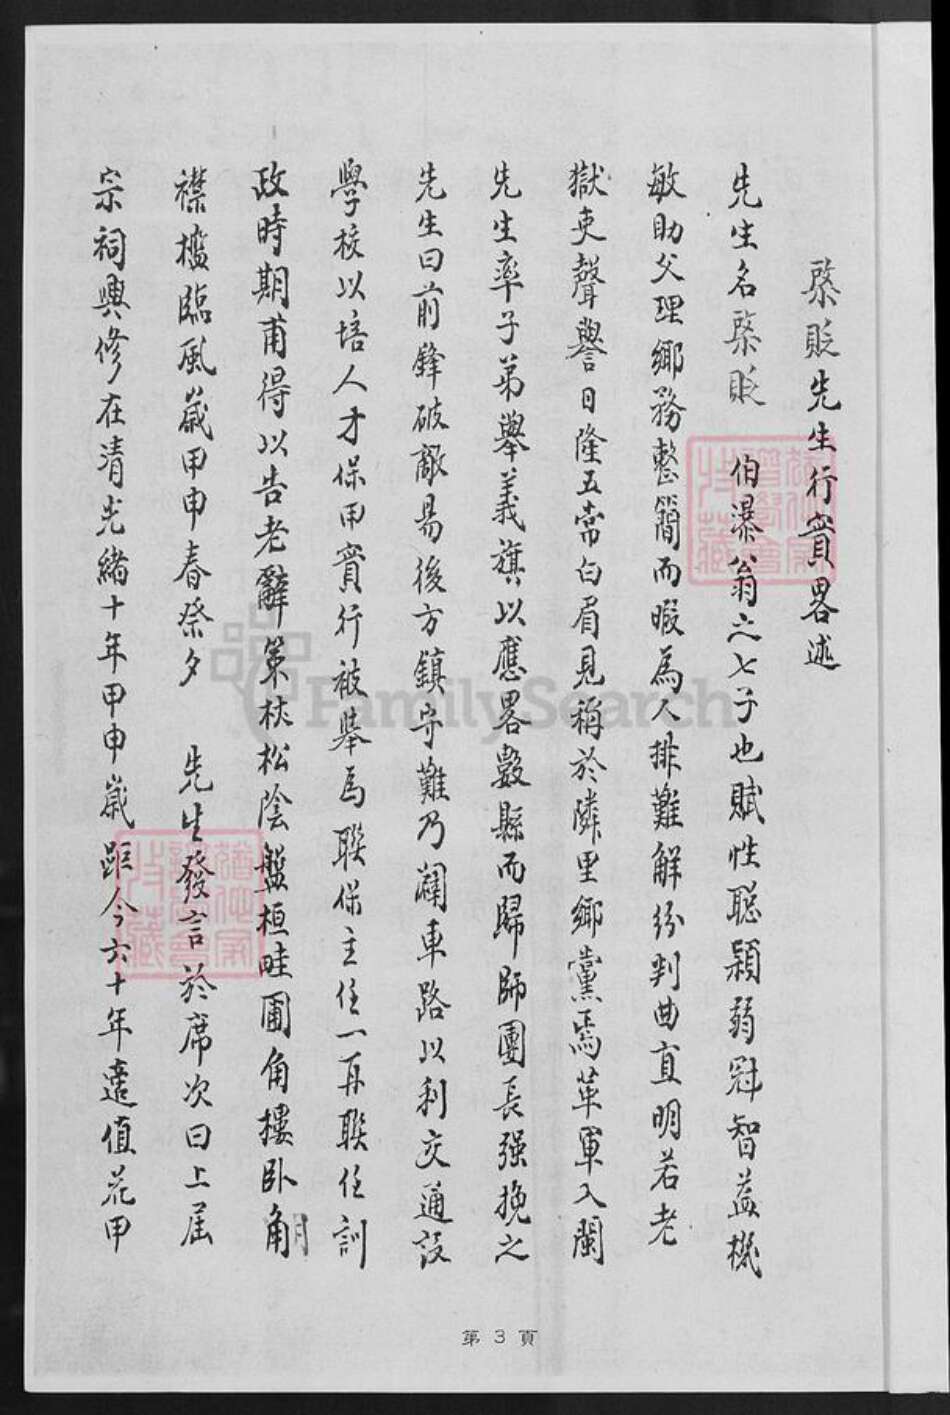 棨貶先生行實畧述
先生名棨貶 伯瀑翁之七子也賦性聪穎弱冠智益機
敏助父理鄉務整簡而暇為人排難解纷判曲直明若老
獄吏聲譽日隆五常白眉見稱於隣里鄉黨焉革軍入閩
先生率子弟舉義旗以應畧數縣而歸師團長强挽之
先生曰前鋒破敵易後方鎮守難乃闢車路以利交通設
學校以培人才保甲實行被舉為聯保主任一再聯任訓
政時期甫得以告老辭策杖松陰盤桓畦圃角摟卧角
襟檻臨風嵗甲申春祭夕 先生發言於席次曰上届
宗祠興修在清光緒十年甲申嵗距今六十年適值花甲
第3頁
FamilySearch